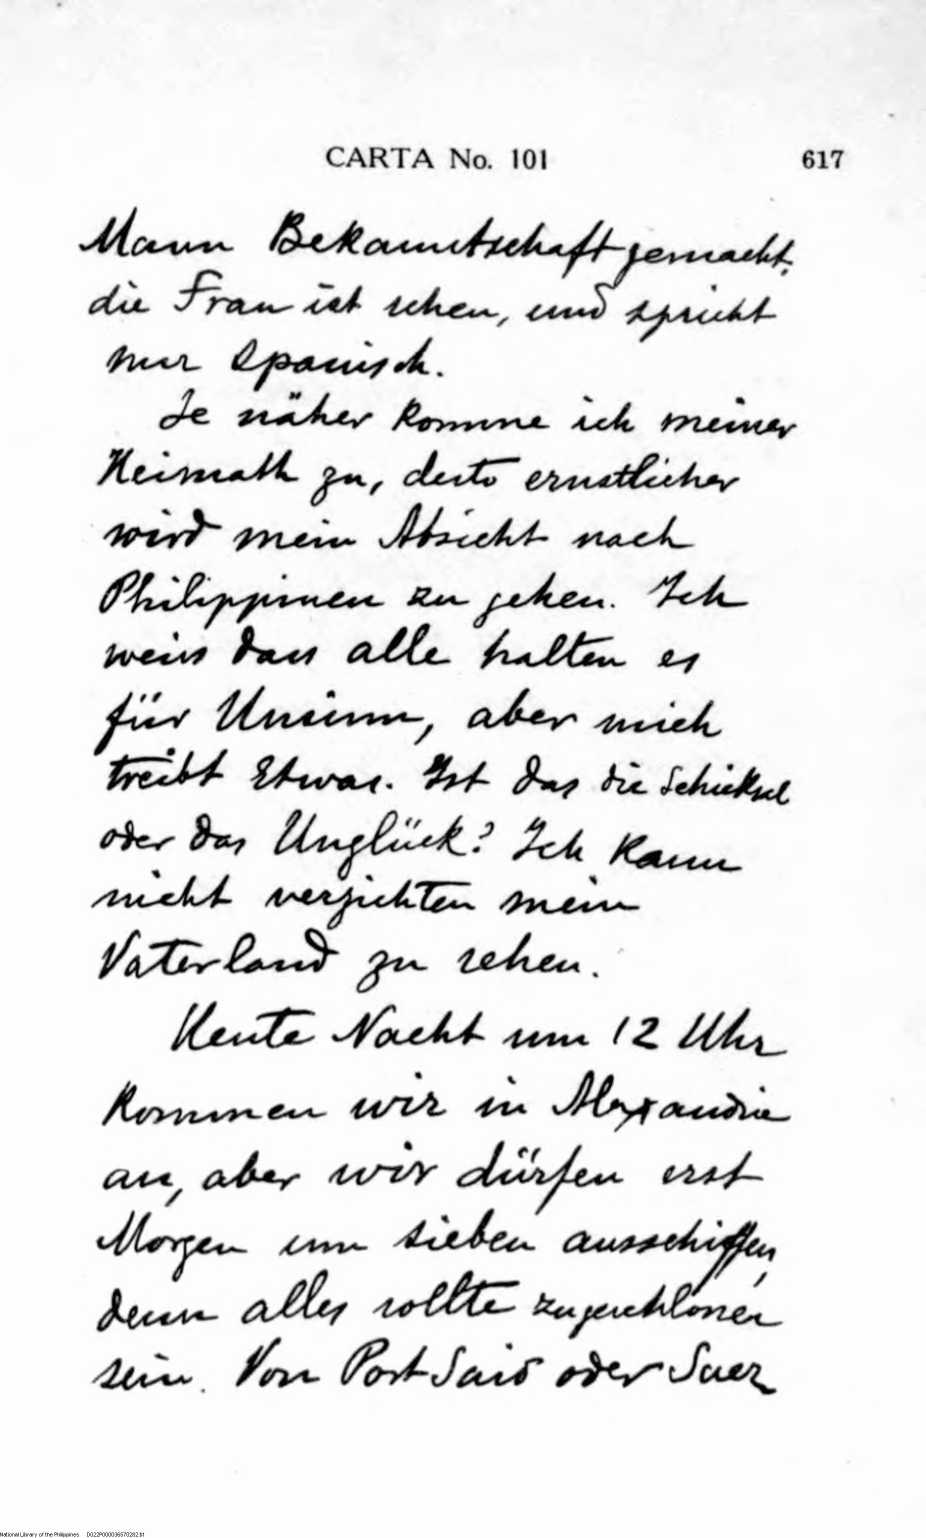 CARTA No. 101 617
Mann Bekanntschaft gemacht,
die Frau ist schen, und spricht
nur Spanisch.
Je näher komme ich meiner
Heimath zu, desto ernstlicher
wird mein Absicht nach
Philippinen zu gehen. Ich
weiss dass alle halten es
für Unsinn, aber mich
treibt Etwas. Ist das die Schicksel
oder das Unglück? Ich kann
nicht verzichten mein
Vaterland zu sehen.
Heute Nacht um 12 Uhr
kommen wir in Alexandrie
an, aber wir dürfen erst
Morgen um sieben ausschiffen,
denn alles sollte zugeschlossen
sein. Von Port Said oder Suez
National Library of the Philippines